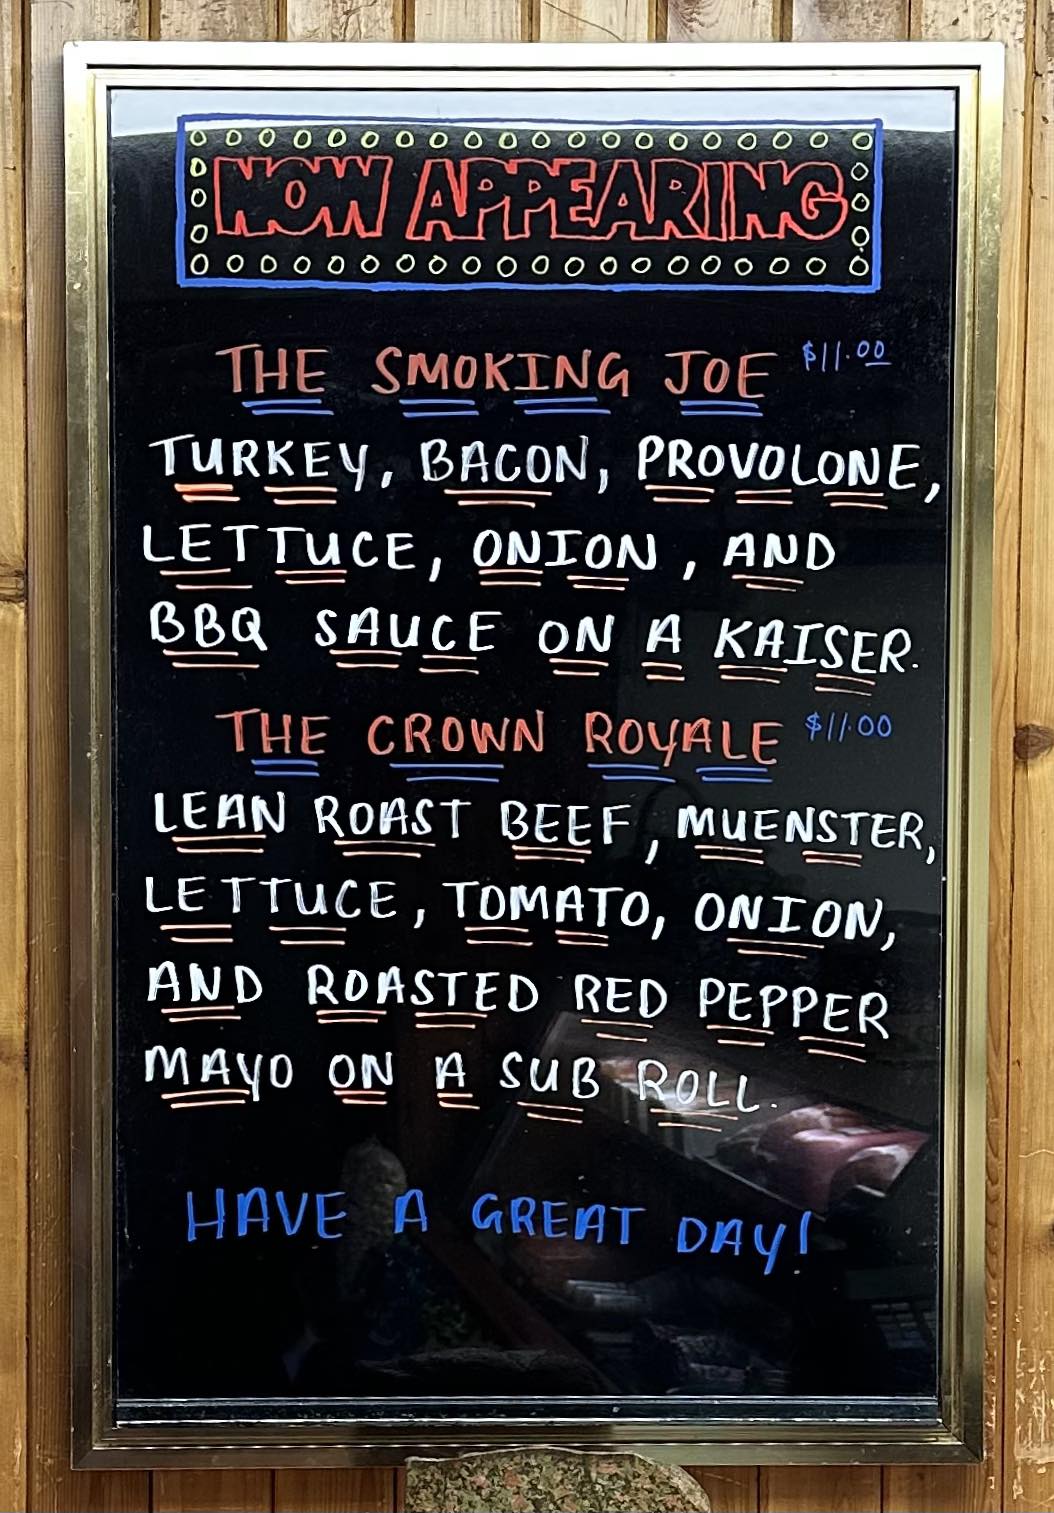 NOW APPEARING
THE SMOKING JOE $11.00
TURKEY, BACON, PROVOLONE,
LETTUCE, ONION, AND
BBQ SAUCE ON A KAISER.
THE CROWN ROYALE $11.00
LEAN ROAST BEEF, MUENSTER,
LETTUCE, TOMATO, ONION,
AND ROASTED RED PEPPER
MAYO ON A SUB ROLL.
HAVE A GREAT DAY!